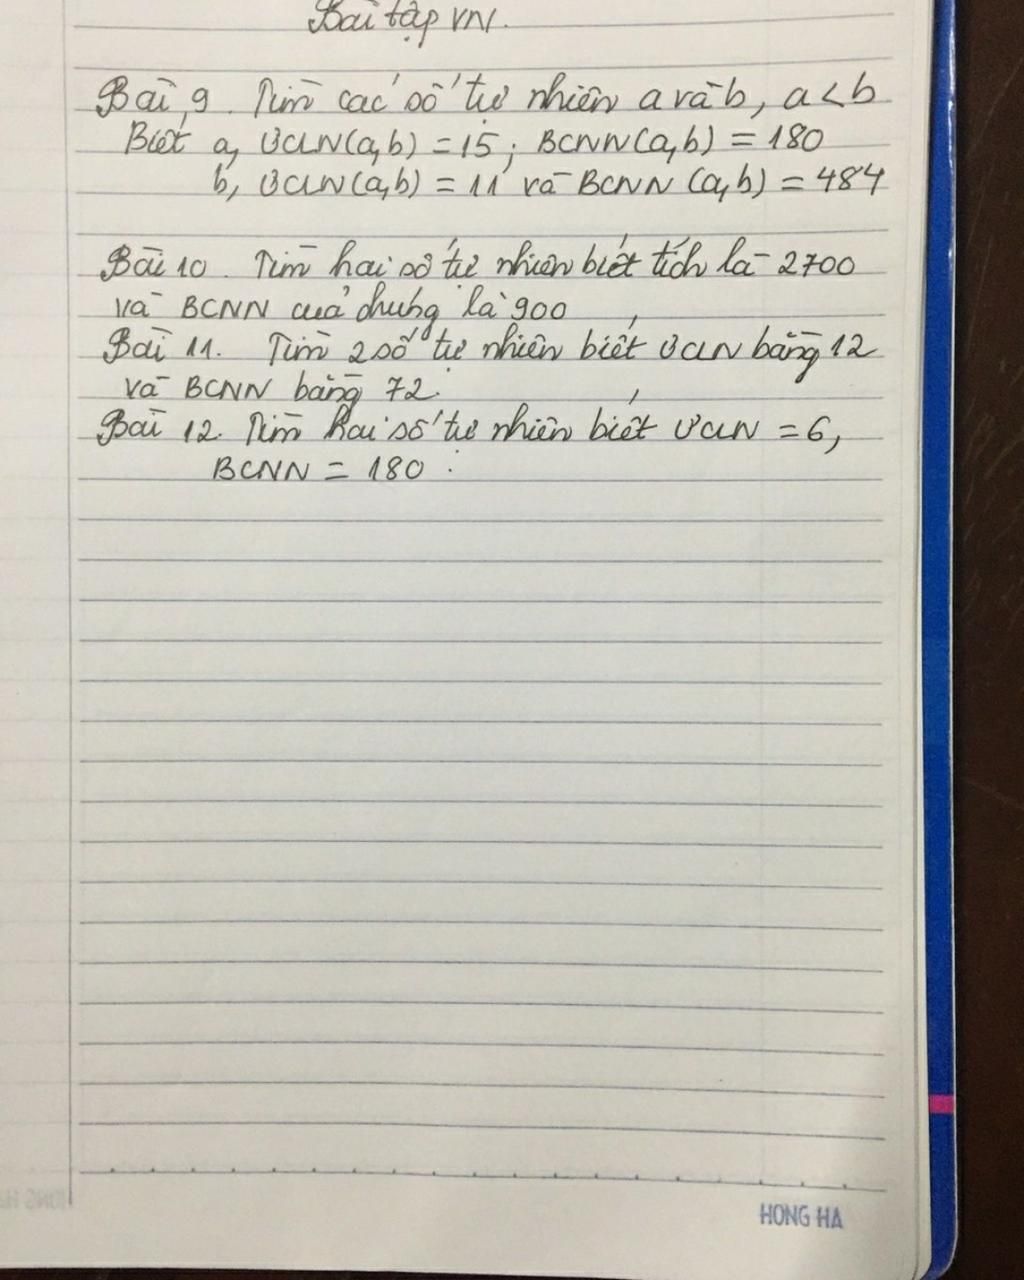 Bài tập VN.
Bài 9. Tìm các số tự nhiên a và b, a < b
Biết a, ƯCLN(a,b) = 15; BCNN(a,b) = 180
b, ƯCLN(a,b) = 11 và BCNN (a,b) = 484
Bài 10. Tìm hai số tự nhiên biết tích là 2700
và BCNN của chúng là 900
Bài 11. Tìm 2 số tự nhiên biết ƯCLN bằng 12
và BCNN bằng 72.
Bài 12. Tìm hai số tự nhiên biết ƯCLN = 6,
BCNN = 180.
HONG HA